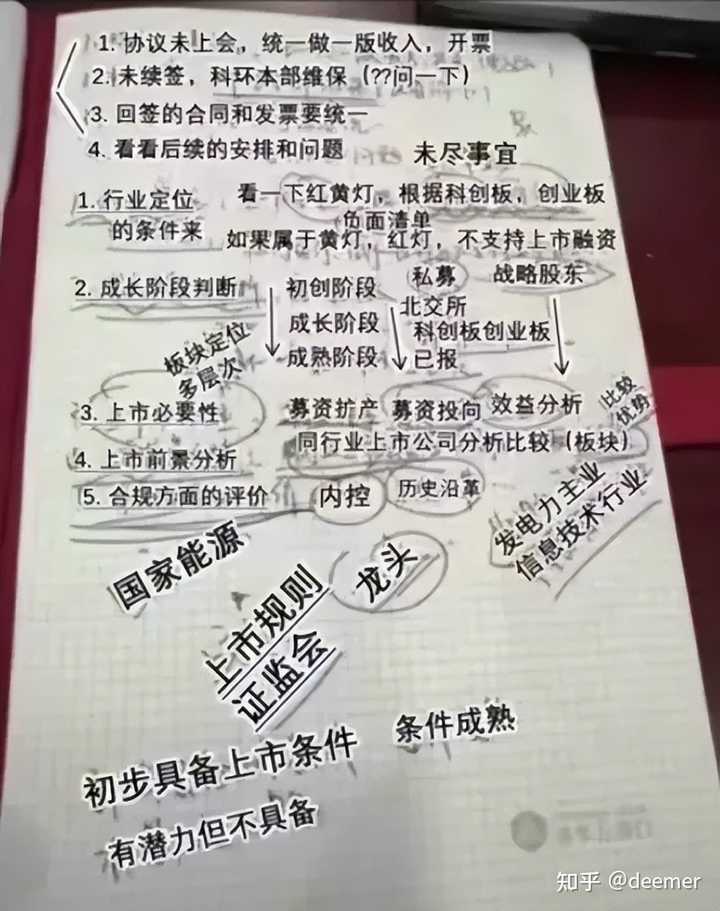 1. 协议未上会，统一做一版收入，开票
2. 未续签，科环本部维保（??问一下）
3. 回签的合同和发票要统一
4. 看看后续的安排和问题
未尽事宜
1. 行业定位的条件来
看一下红黄灯，根据科创板，创业板
负面清单
如果属于黄灯，红灯，不支持上市融资
2. 成长阶段判断
初创阶段
成长阶段
成熟阶段
私募
北交所
科创板创业板
已报
战略股东
板块定位
多层次
3. 上市必要性
募资扩产 募资投向 效益分析
比较
优势
同行业上市公司分析比较（板块）
4. 上市前景分析
5. 合规方面的评价
内控
历史沿革
发电力主业
信息技术行业
国家能源
龙头
上市规则
证监会
初步具备上市条件
条件成熟
有潜力但不具备
知乎 @deemer